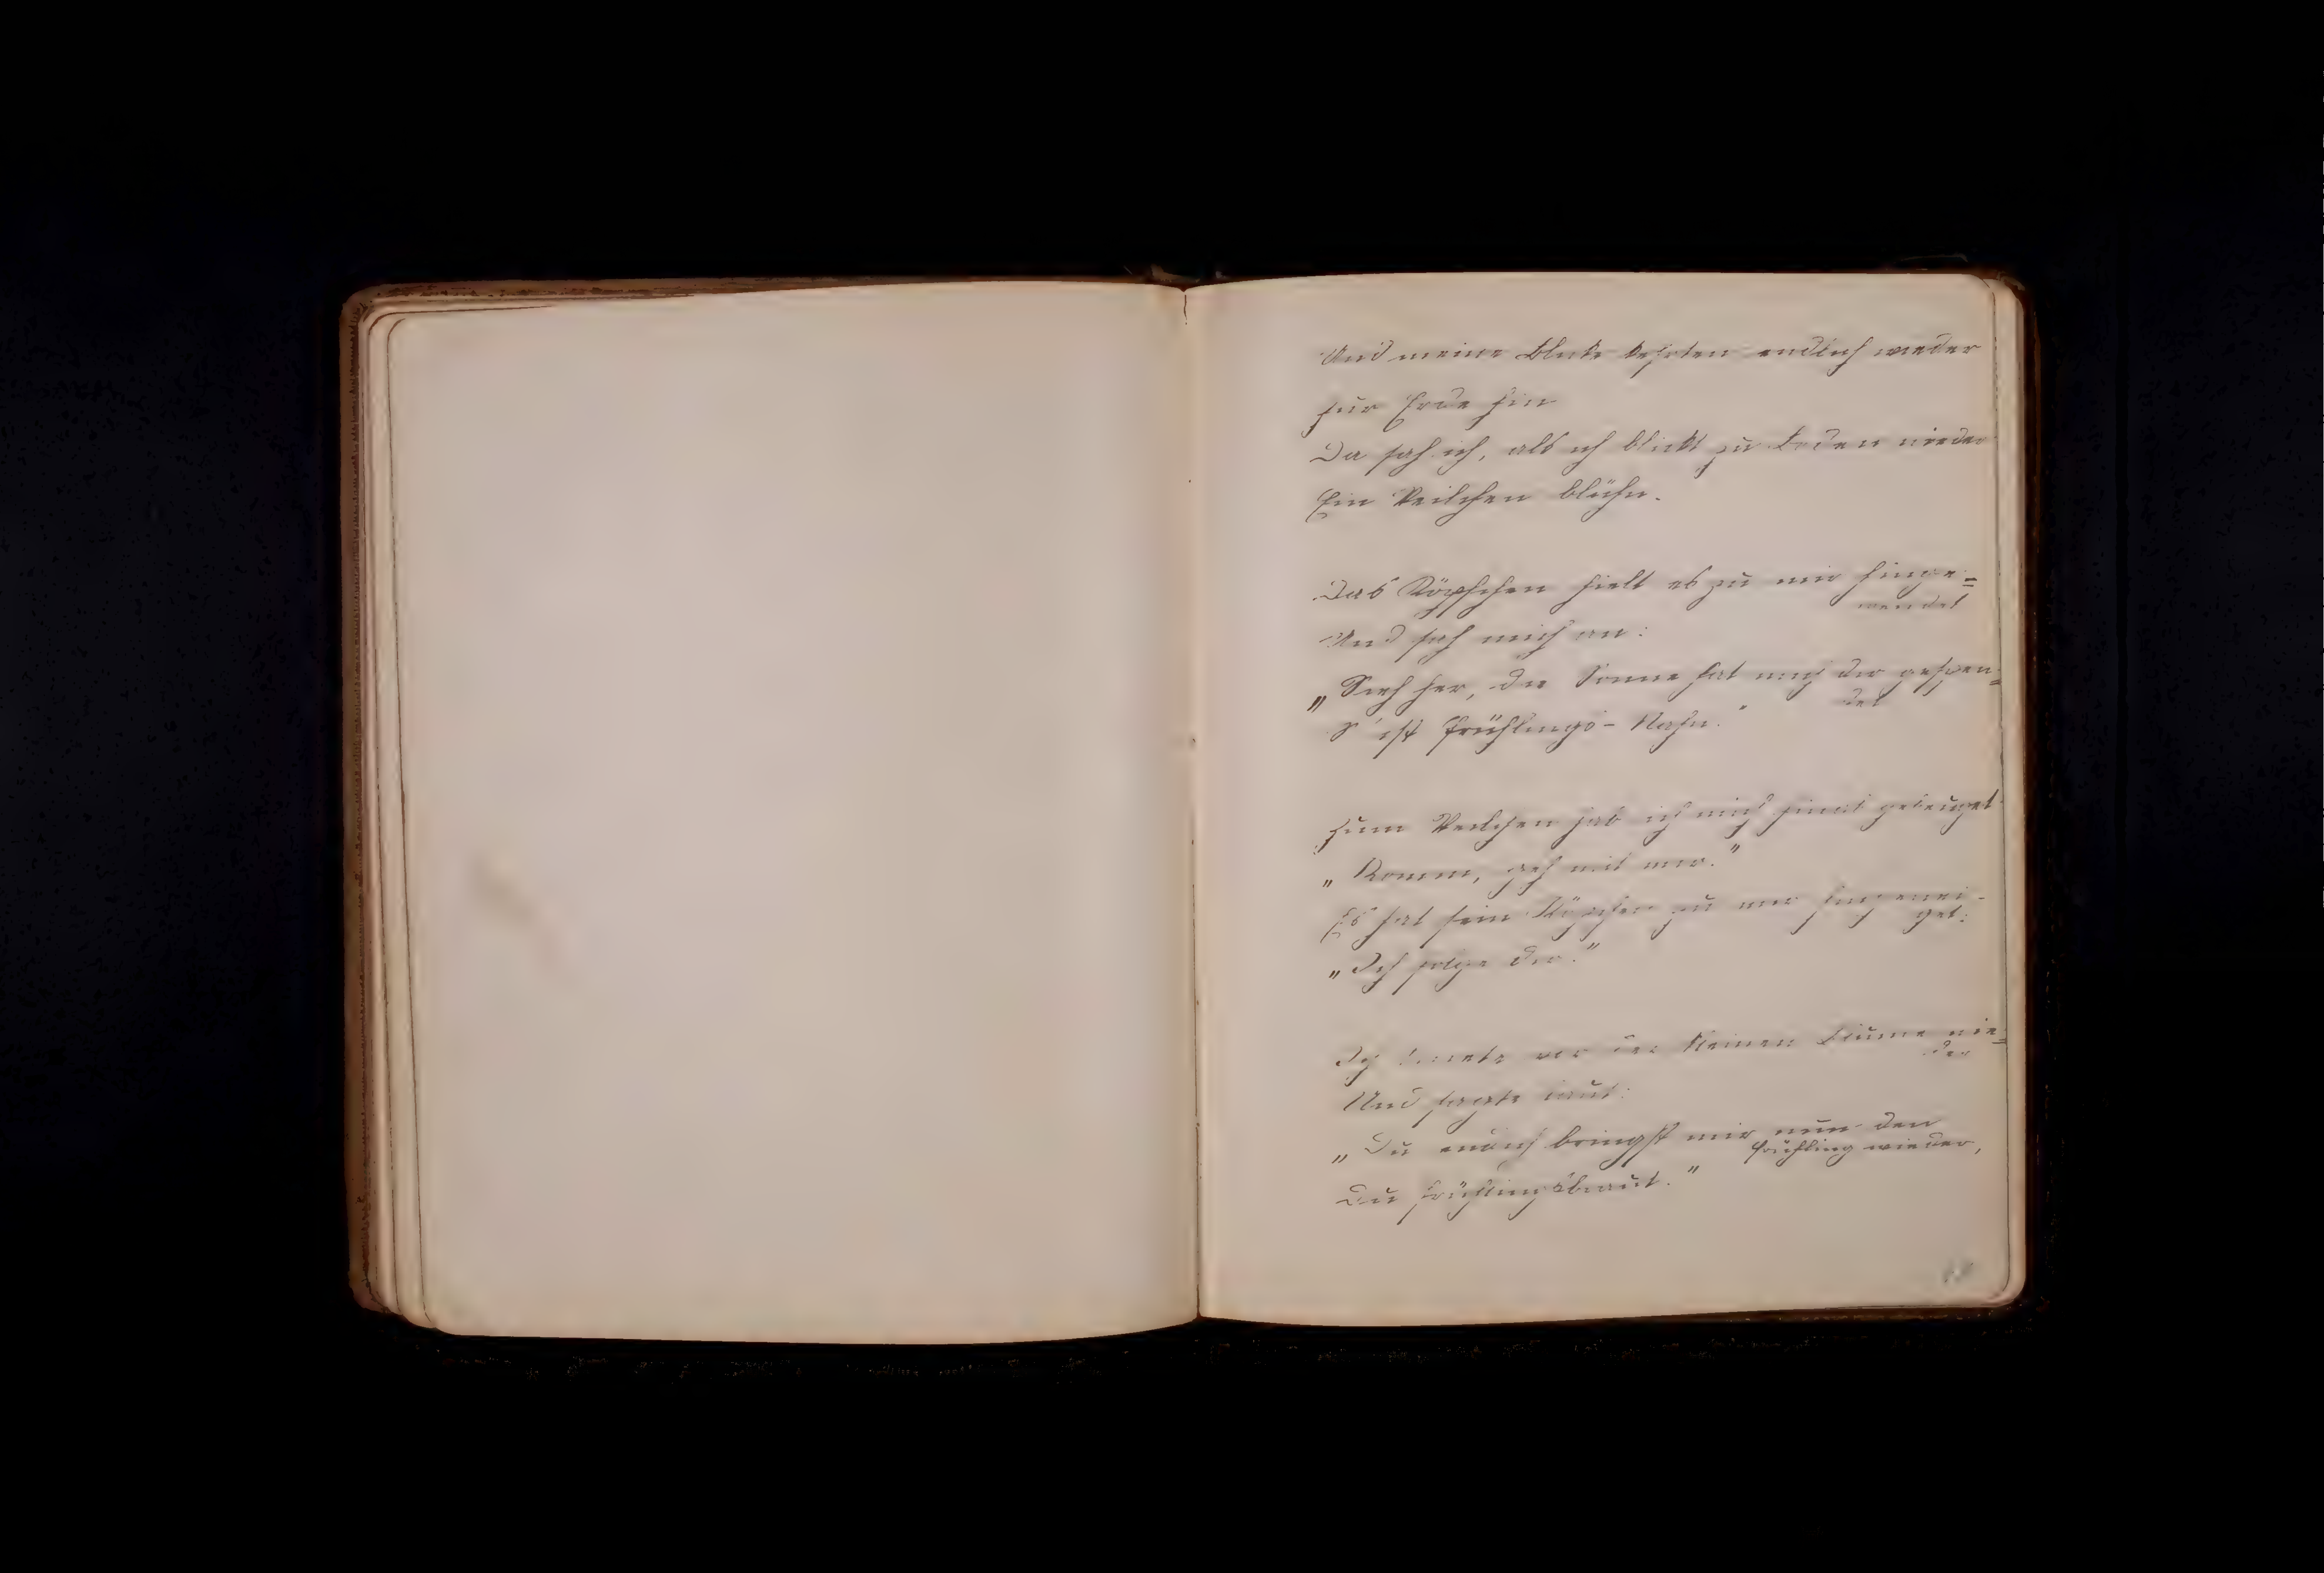 Und meine Blicke kehrten endlich wieder
zur Erde hin
Da sah ich, als ich blickt zu Boden nieder
Ein Veilchen blühn.
Das Köpfchen hielt es zu mir hinge=
wendet
Und sah mich an:
„Sieh her, die Sonne hat mich dir gespen=
det
S' ist Frühlings-Nahn."
Zum Veilchen hab ich mich hinab gebeuget
„Komm, geh mit mir."
Es hat sein Köpfchen zu mir hingenei-
get:
„Ich folge dir."
Ich kniete vor der kleinen Blume nie=
der
Und sagte laut:
„Du endlich bringst mir nun den
Frühling wieder,
Du Frühlingsbraut."